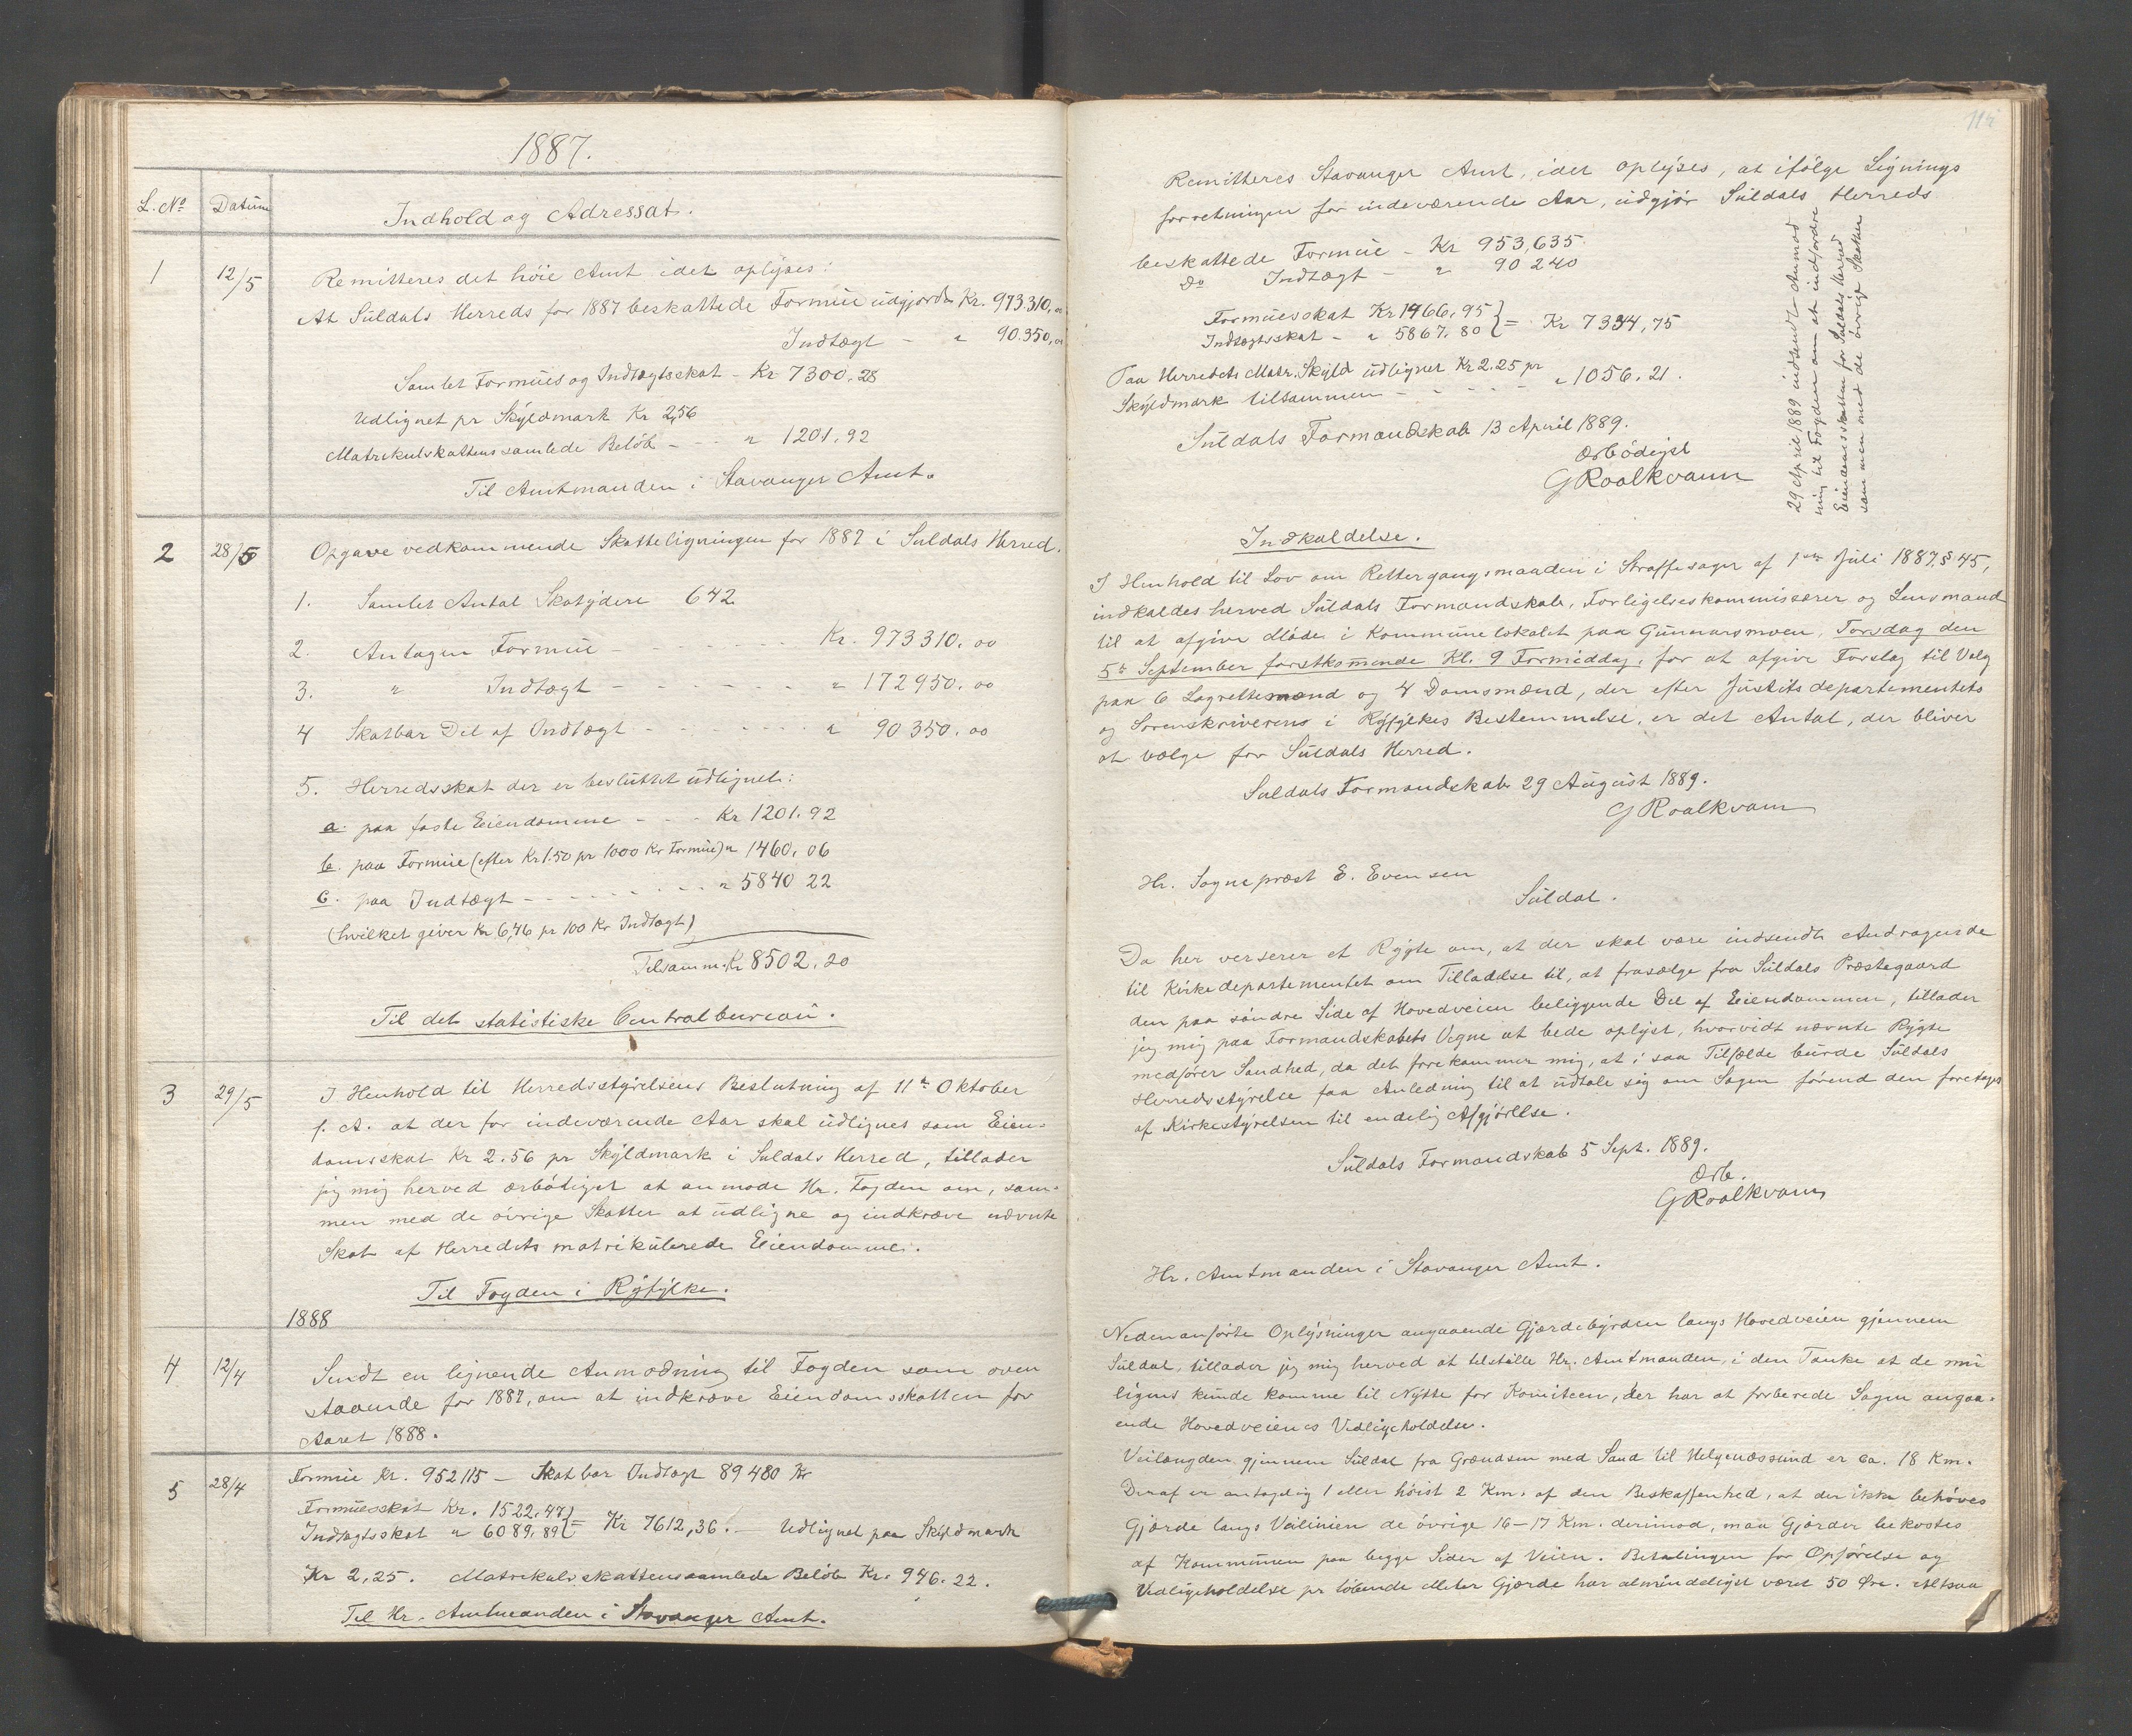 1887.
L. No Datum Indhold og Adressat.
1 12/5 Remitteres det høie Amt idet oplyses:
At Suldals Herreds for 1887 beskattede Formue udgjorde Kr. 973.310,00
Indtægt - " 90.350,00
Samlet Formues og Indtægtsskat - Kr 7300.28
Udlignet pr Skyldmark Kr 2,56
Matrikulskattens samlede Beløb - - - " 1201,92
Til Amtmanden i Stavanger Amt.
2 28/5 Opgave vedkommende Skatteligningen for 1887 i Suldals Herred.
1. Samlet Antal Skatydere 642
2. Antagen Formue - - - - - - Kr. 973310.00
3. " Indtægt - - - - - - " 172950.00
4 Skatbar Del af Indtægt - - - - - - " 90350.00
5. Herredsskat der er besluttet udlignet:
a. paa faste Eiendomme - - - Kr 1201.92
b. paa Formue (efter Kr 1.50 pr 1000 Kr Formue) " 1460,06
c. paa Indtægt - - - - - - " 5840 22
(hvilket giver Kr 6,46 pr 100 Kr Indtægt)
Tilsamm. Kr 8502.20
Til det statistiske Centralbureau.
3 29/5 I Henhold til Herredsstyrelsens Beslutning af 11te Oktober
f. A. at der for indeværende Aar skal udlignes som Eien-
domsskat Kr 2.56 pr Skyldmark i Suldals Herred, tillader
jeg mig herved ærbødigst at anmode Hr. Fogden om, sam-
men med de øvrige Skatter at udligne og indkræve nævnte
Skat af Herredets matrikulerede Eiendomme.
Til Fogden i Ryfylke.
1888
4 12/4 Sendt en lignende Anmodning til Fogden som oven
staaende for 1887, om at indkræve Eiendomsskatten for
Aaret 1888.
5 28/4 Formue Kr. 952115 - Skatbar Indtægt 89480 Kr
Formuesskat Kr. 1522.47
Indtægtsskat " 6089,89 } = Kr 7612,36. - Udlignet paa Skyldmark
Kr 2,25. Matrikulsskattens samlede Beløb Kr. 946.22.
Til Hr. Amtmanden i Stavanger Amt.
Remitteres Stavanger Amt, idet oplyses, at ifølge Lignings
forretningen for indeværende Aar, udgjør Suldals Herreds
beskattede Formue - Kr 953,635.
Do Indtægt - " 90240
Formuesskat Kr 1466,95
Indtægtsskat - " 5867.80 } = Kr 7334,75
Paa Herredets Matr. Skyld udlignet Kr 2.25 pr
Skyldmark tilsammen - - - - " 1056.21.
Suldals Formandskab 13 April 1889.
Ærbødigst
G Roalkvam
29 April 1889 indsendt Anmod
ning til Fogden om at indfordre
Eiendomsskatten for Suldals Herred
sammen med de øvrige Skatter
Indkaldelse.
I Henhold til Lov om Rettergangsmaaden i Straffesager af 1ste Juli 1887, § 45,
indkaldes herved Suldals Formandskab, Forligelseskommissærer og Lensmand
til at afgive Møde i Kommunelokalet paa Gunnarsmoen, Torsdag den
5te September førstkommende Kl. 9 Formiddag, for at afgive Forslag til Valg
paa 6 Lagrettemænd og 4 Domsmænd, der efter Justitsdepartementets
og Sorenskriverens i Ryfylkes Bestemmelse, er det Antal, der bliver
at vælge for Suldals Herred.
Suldals Formandskab 29 August 1889.
G Roalkvam
Hr. Sogneprest E. Evensen
Suldal.
Da her verserer et Rygte om, at der skal være indsendt Andragende
til Kirkedepartementet om Tilladelse til, at frasælge fra Suldals Præstegaard
den paa søndre Side af Hovedveien beliggende Del af Eiendommen, tillader
jeg mig paa Formandskabets Vegne at bede oplyst, hvorvidt nævnte Rygte
medfører Sandhed, da det forekommer mig, at i saa Tilfælde burde Suldals
Herredsstyrelse faa Anledning til at udtale sig om Sagen førend den foretages
af Kirkestyrelsen til endelig Afgjørelse.
Suldals Formandskab 5 Sept. 1889.
Ærb.
G Roalkvam
Hr. Amtmanden i Stavanger Amt.
Nedenanførte Oplysninger angaaende Gjærdebyrden langs Hovedveien gjennem
Suldal, tillader jeg mig herved at tilstille Hr. Amtmanden, i den Tanke at de mu
ligens kunde komme til Nytte for Komiteen, der har at forberede Sagen angaa-
ende Hovedveienes Vedligeholdelse.
Veilængden gjennem Suldal fra Grændsen med Sand til Helgenæssund er ca. 18 Km.
Deraf er antagelig 1 eller høist 2 Km. af den Beskaffenhed, at der ikke behøves
Gjærde langs Veilinien de øvrige 16-17 Km. derimod, maa Gjærder bekostes
af Kommunen paa begge Sider af Veien. Betalingen for Opførelse og
Vedligeholdelse pr løbende Meter Gjærde har almindeligst været 50 Øre. Altsaa